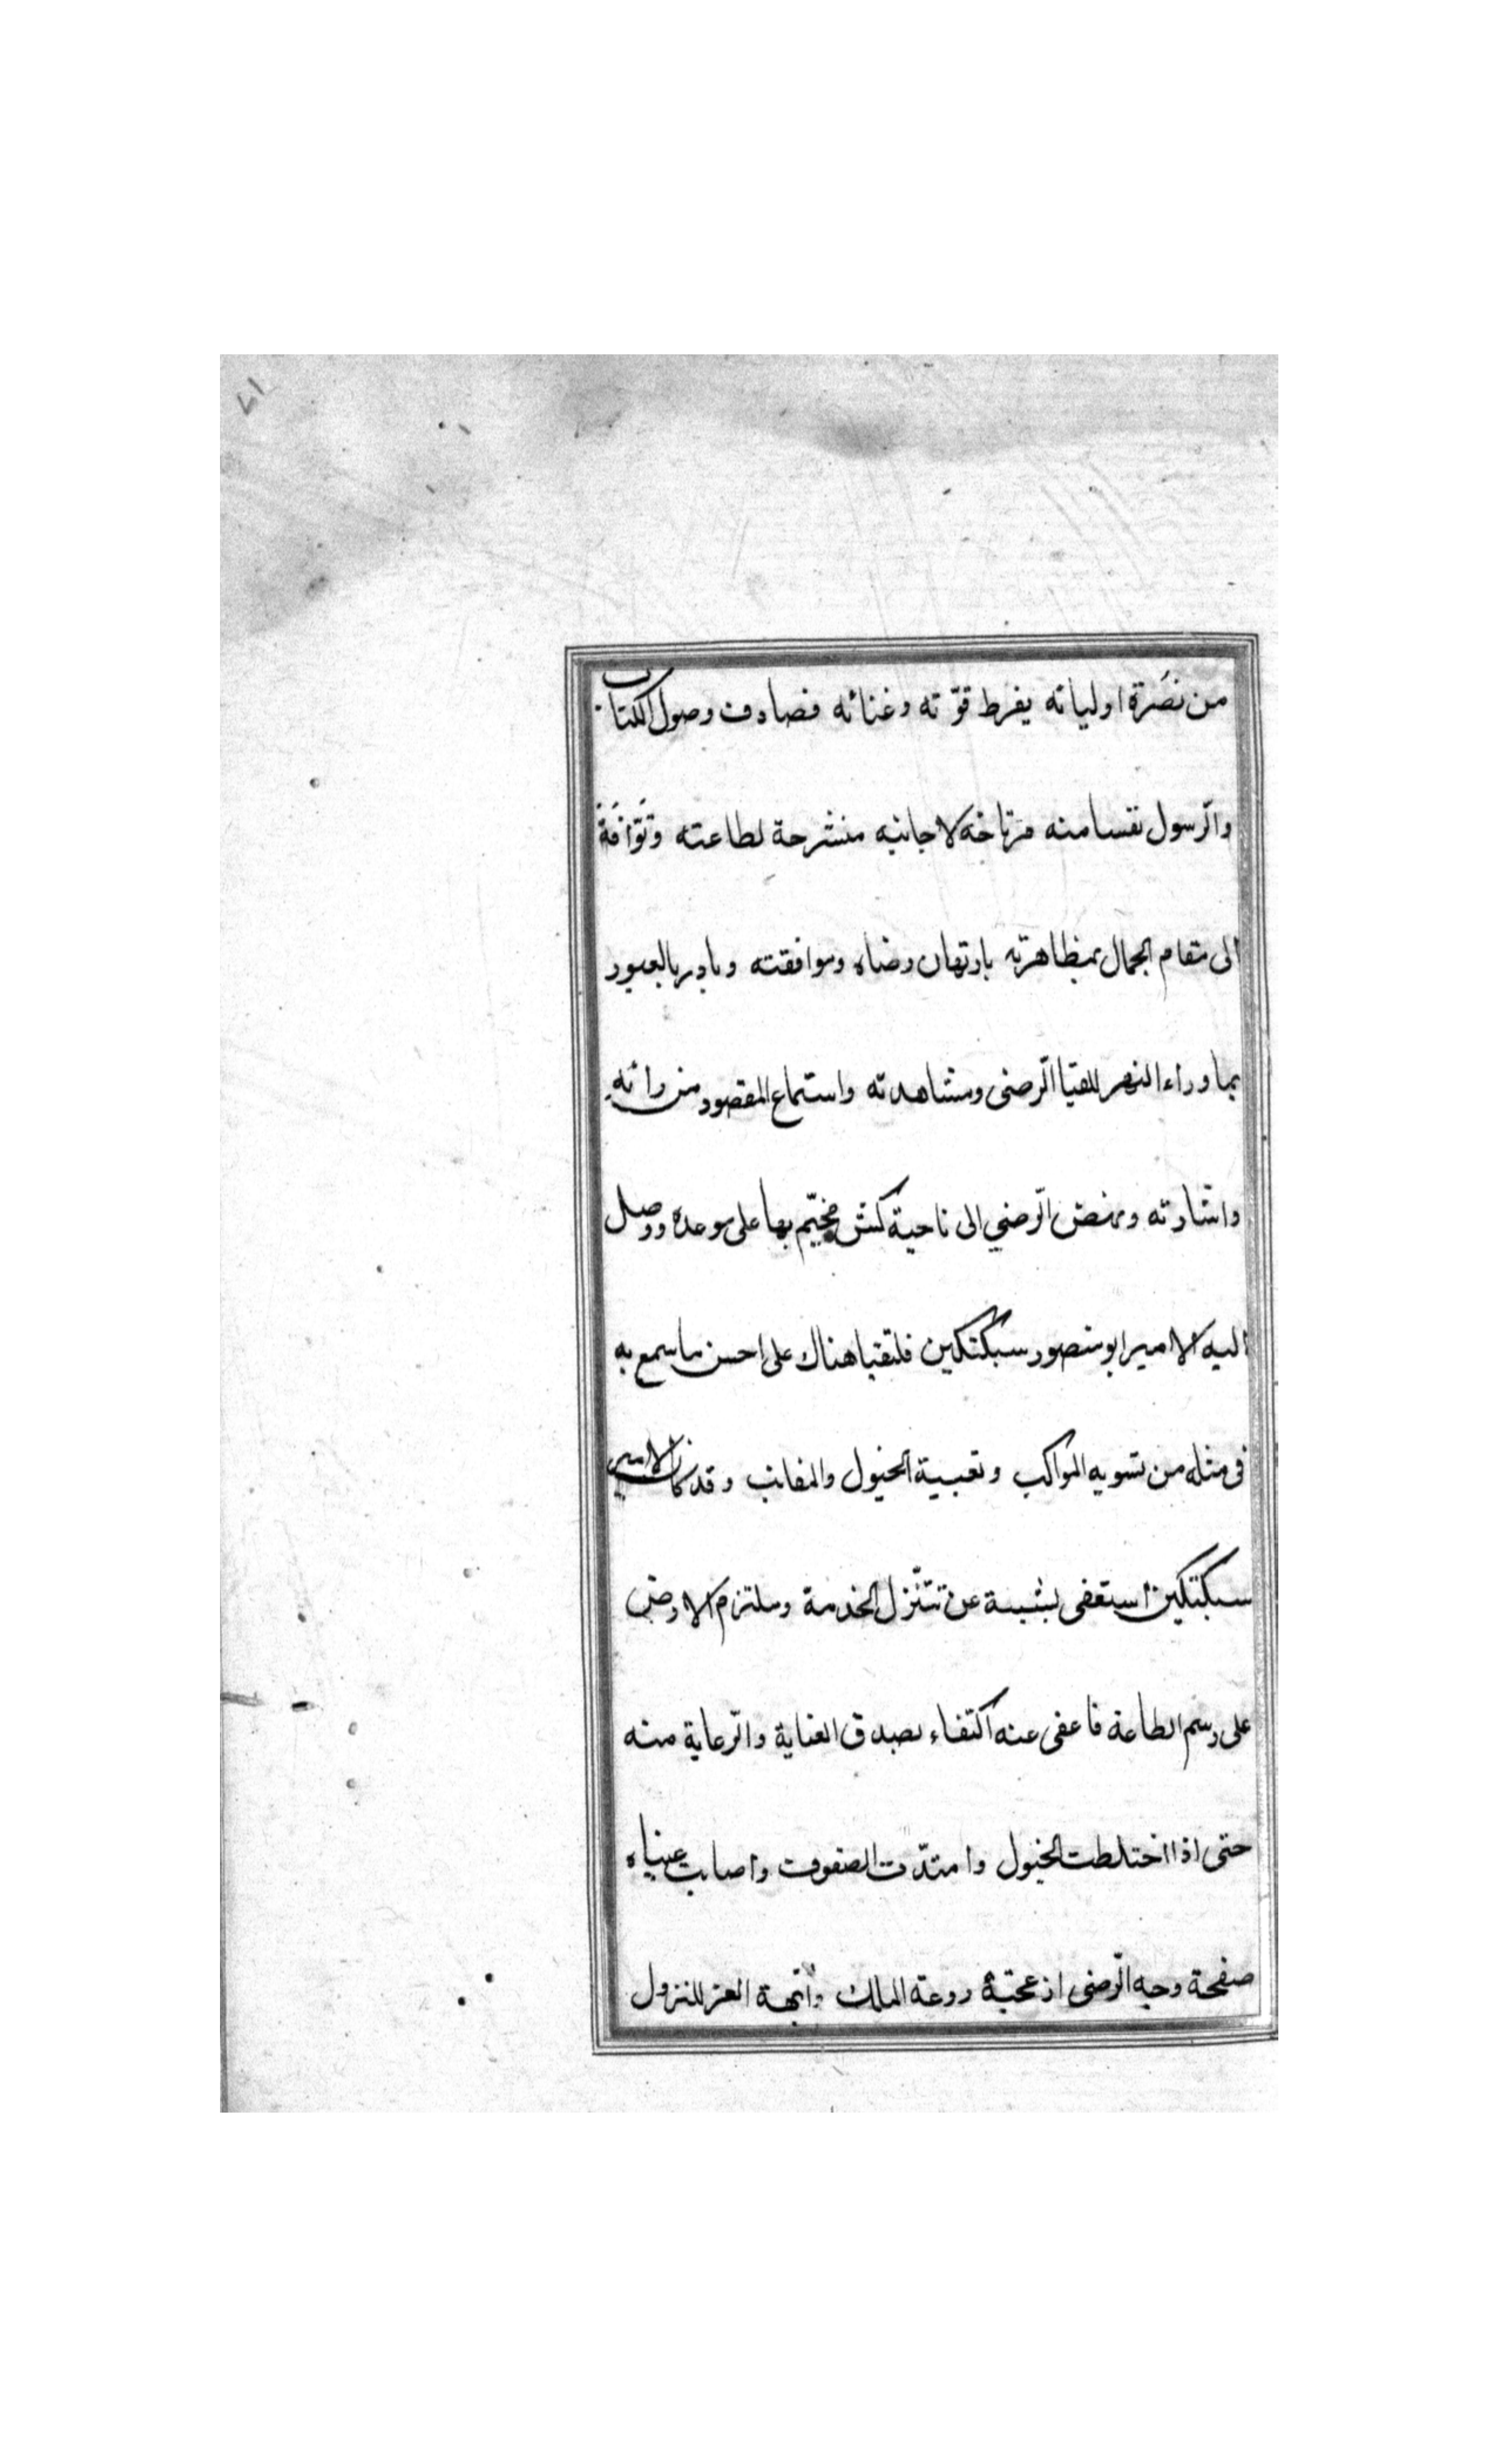 من نصَرة اوليائه يفرط قوّته وغنائه فصادف وصول الكتاب
والرّسول نفسا منه مرتاحه لاجانبه منشرحة لطاعته وتَوّاقَةً
الى مقام الجمال بمظاهرته بارتهان رضاه وموافقته وبادر بالعبور
بما وراء النهر للقيا الرّضى ومشاهدته واستماع المقصود من رائه
واشارته ونهض الرّضي الى ناحية كش مخيّم بها على موعده ووصل
اليه الامير ابو منصور سبكتكين فلتقيا هناك على احسن ما سمع به
فى مثله من تسويه المواكب وتعبية الخيول والمقانب وقد كان الامير
سبكتكين استعفى بشيبة عن تنزّل الخدمة وملتزم الارض
على رسم الطاعة فاعفى عنه اكتفاء بصدق العناية والرّعاية منه
حتى اذا اختلطت الخيول وامتدّت الصفوف واصابت عيناه
صفحة وجه الرّضى ازعجته روعة الملك وابّهة العز للنزول